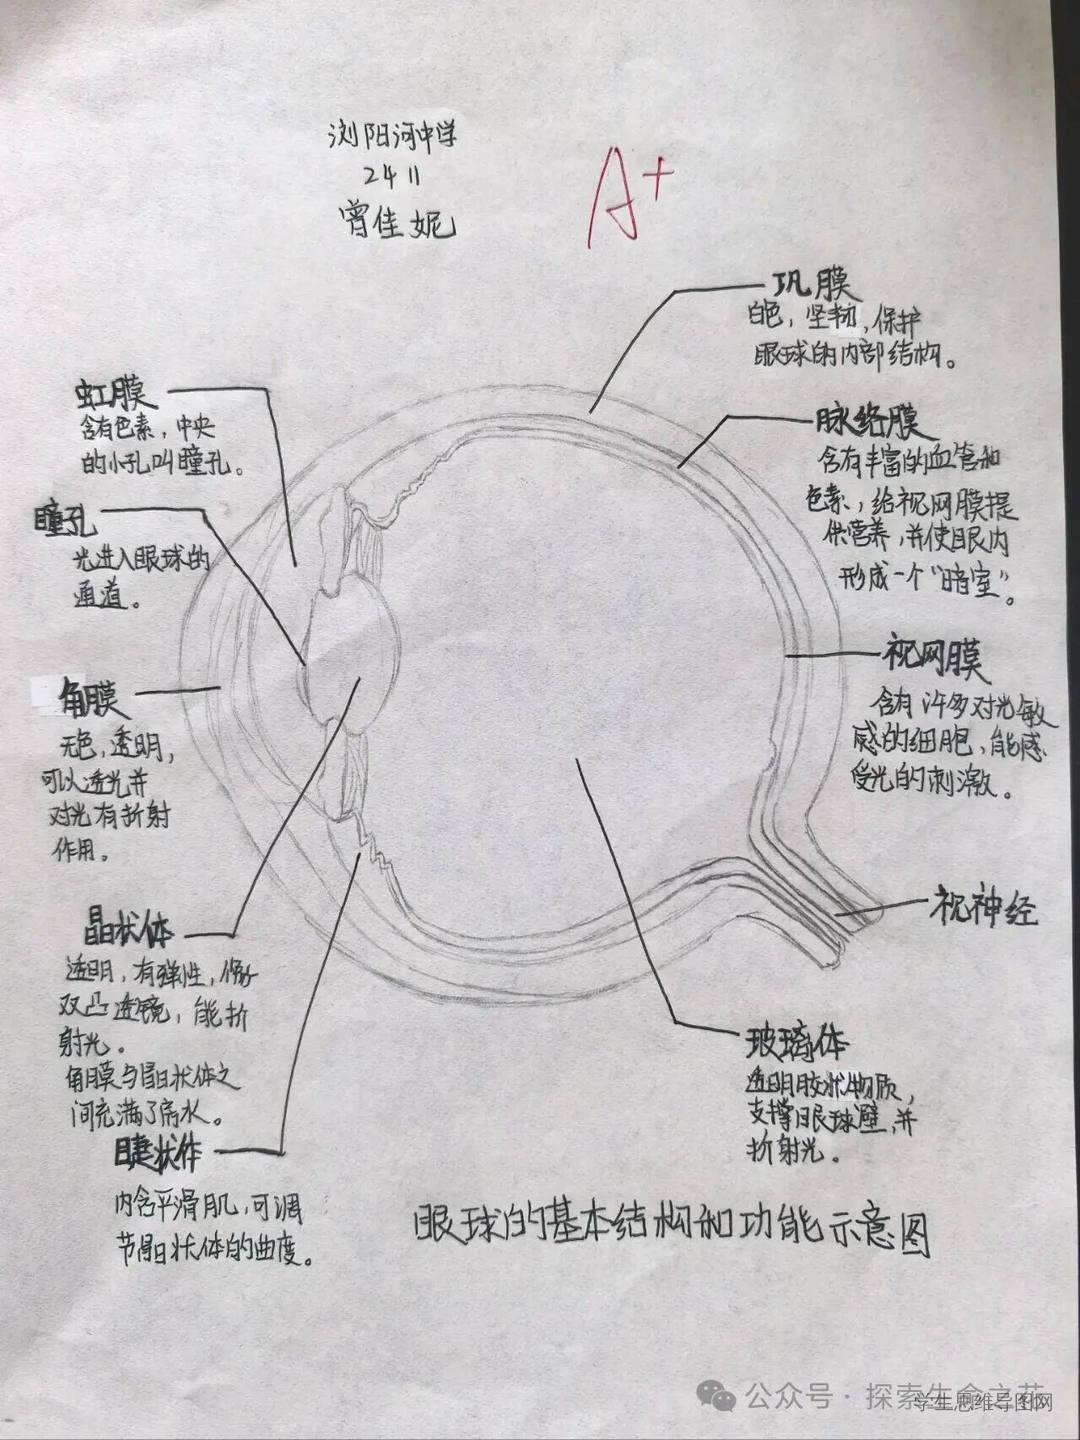 浏阳河中学
2411
曾佳妮
A+
巩膜
白色，坚韧，保护
眼球的内部结构。
虹膜
含有色素，中央
的小孔叫瞳孔。
脉络膜
含有丰富的血管和
色素，给视网膜提
供营养，并使眼内
形成一个“暗室”。
瞳孔
光进入眼球的
通道。
视网膜
含有许多对光敏
感的细胞，能感
受光的刺激。
角膜
无色，透明，
可以透光并
对光有折射
作用。
视神经
晶状体
透明，有弹性，像
双凸透镜，能折
射光。
角膜与晶状体之
间充满了房水。
玻璃体
透明胶状物质，
支撑眼球壁，并
折射光。
睫状体
内含平滑肌，可调
节晶状体的曲度。
眼球的基本结构和功能示意图
公众号·探索生命之花
学生思维导图网